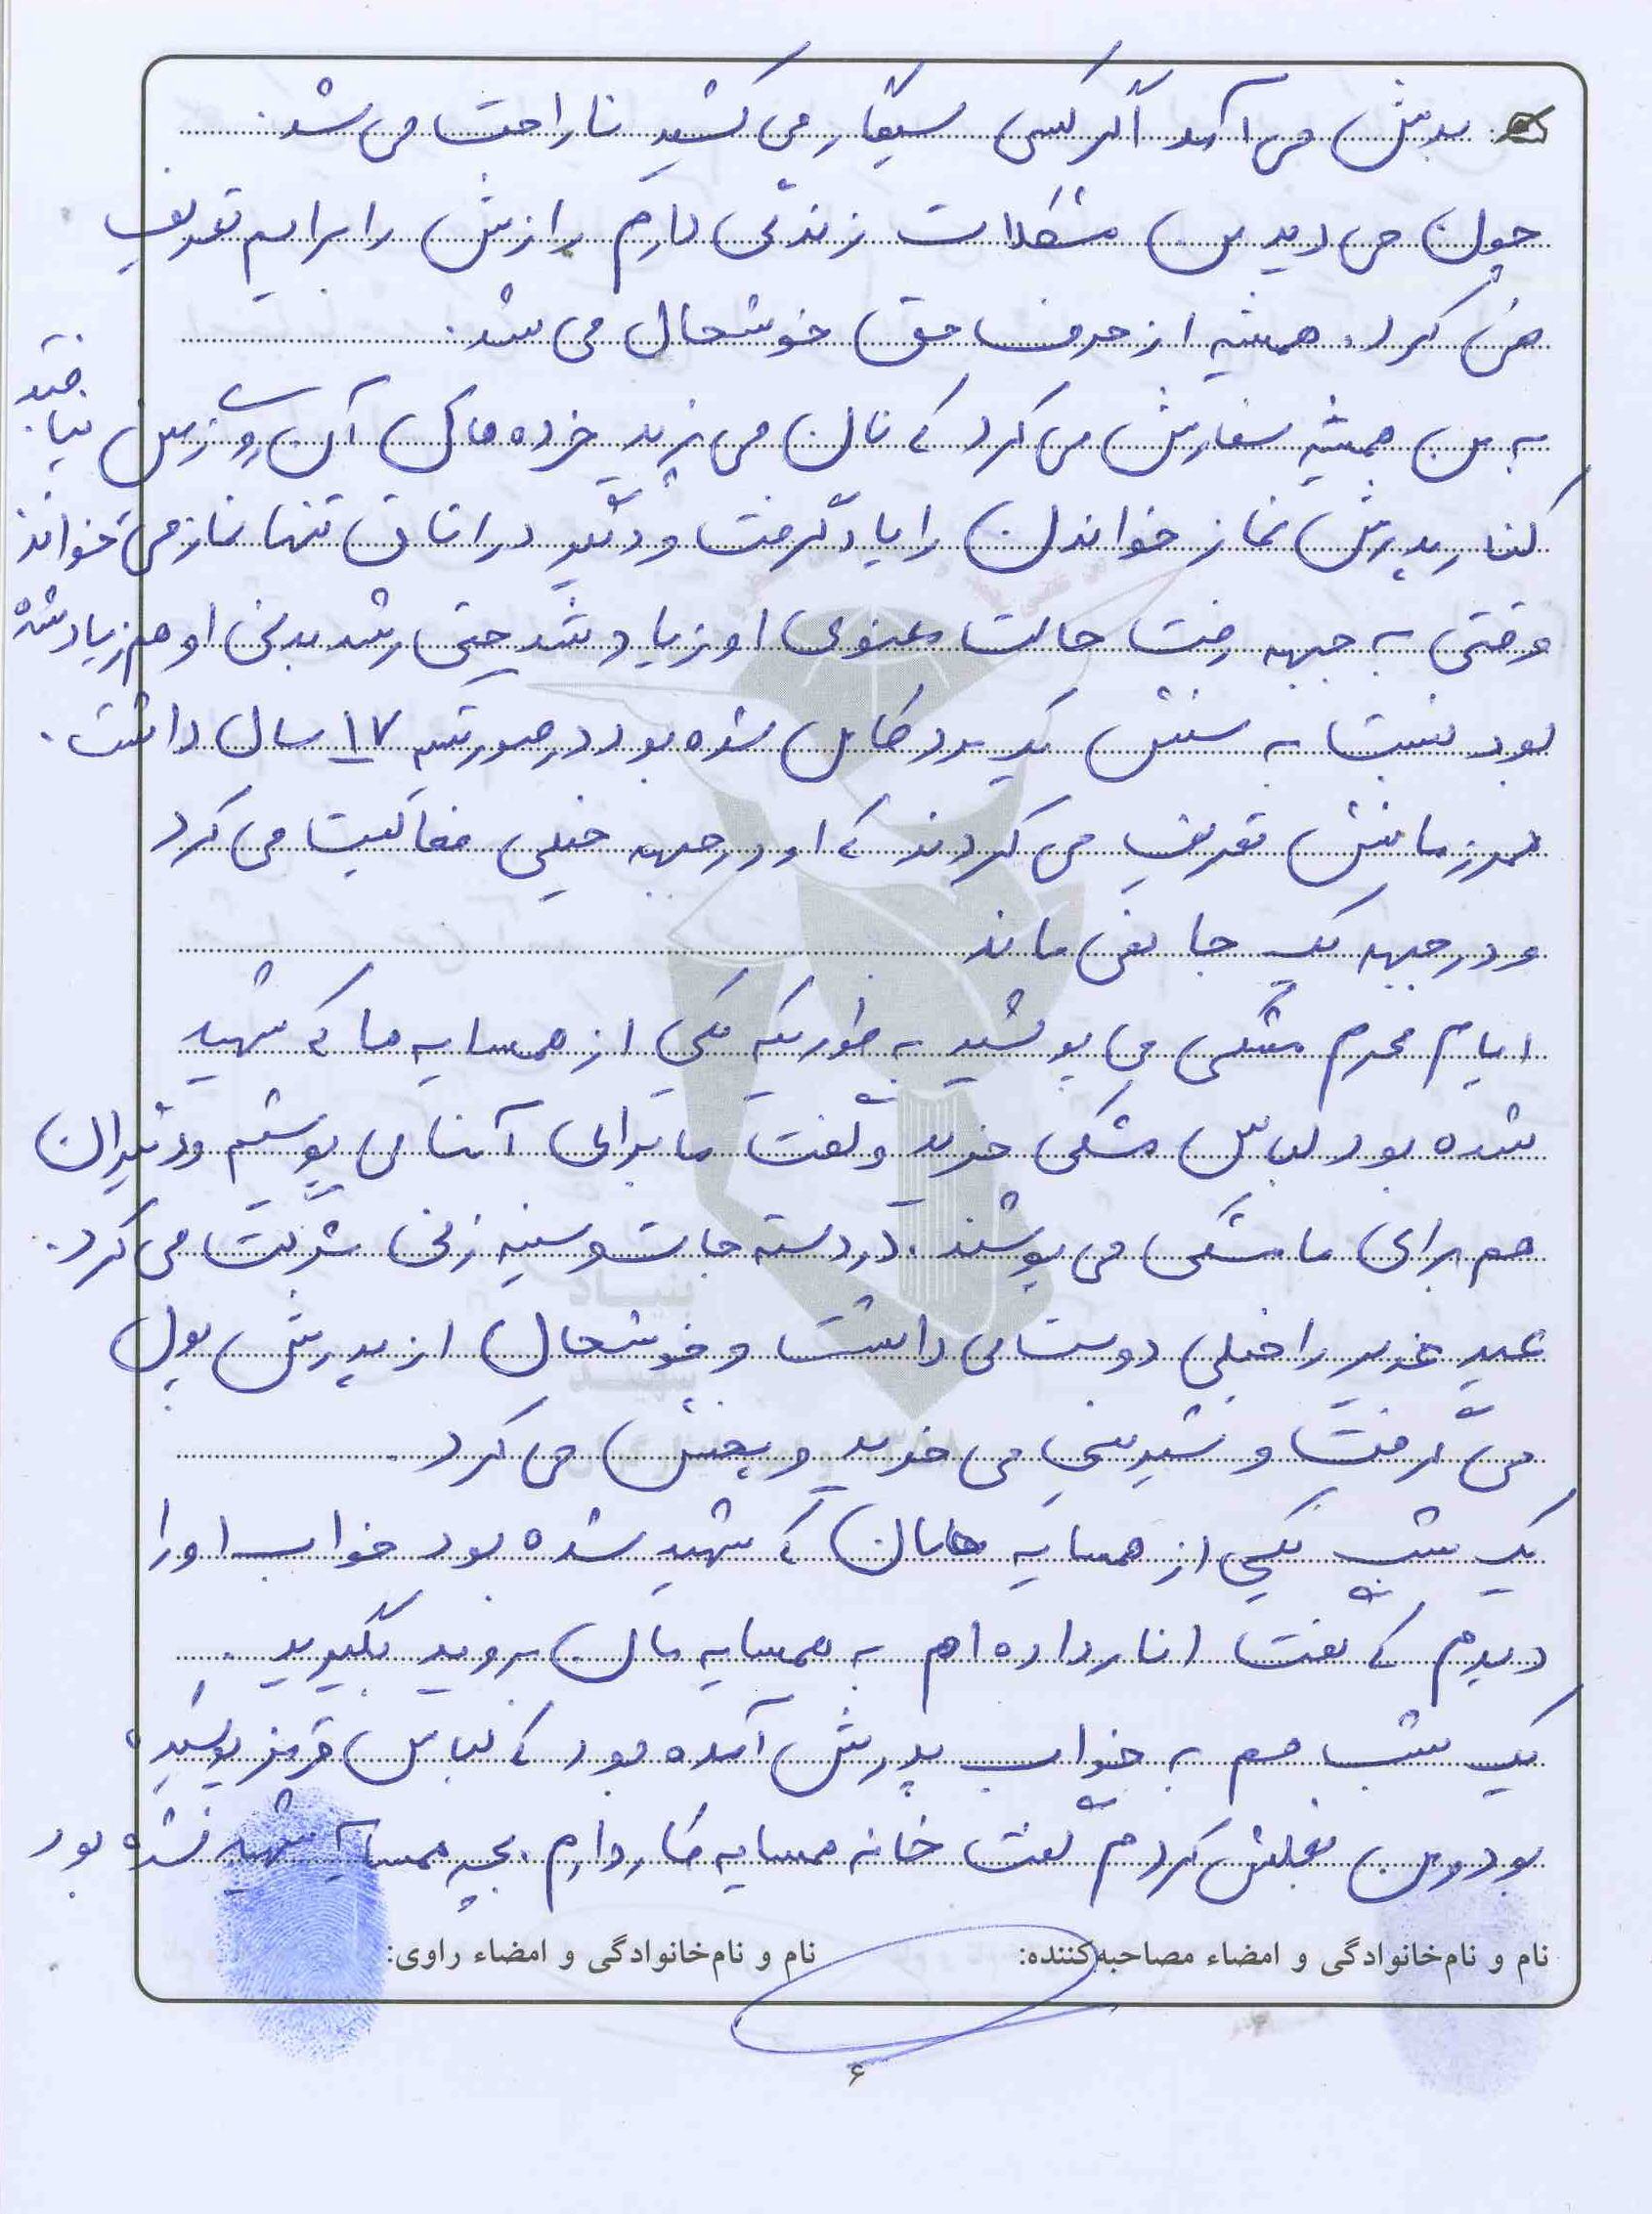 بدش می آمد اگر کسی سیگار می کشید ناراحت می شد.
چون می دید من مشکلات زندگی دارم رازش را برایم تعریف
نمی کرد. همیشه از حرف حق خوشحال می شد.
به من همیشه سفارش می کرد که نان می زنید خرده های آن روی زمین نیافتد
کنار پدرش نماز خواندن را یاد گرفت و دیگر در اتاق تنها نماز می خواند
وقتی به جبهه رفت حالت معنوی او زیاد شد حتی رشد بدنی او هم زیاد شده
بود نسبت به سنش یک مرد کامل شده بود در صورتیکه ۱۷ سال داشت.
همرزمانش تعریف می کردند که او در جبهه خیلی فعالیت می کرد
و در جبهه یک جا نمی ماند
ایام محرم مشکی می پوشید به طوریکه یکی از همسایه ها که شهید
شده بود لباس مشکی خرید و گفت ما برای آنها می پوشیم و دیگران
هم برای ما مشکی می پوشند. در دسته جات و سینه زنی شرکت می کرد.
عید غدیر را خیلی دوست می داشت و خوشحال از پدرش پول
می گرفت و شیرینی می خرید و پخش می کرد
یک شب یکی از همسایه هامان که شهید شده بود خواب او را
دیدم که گفت انار داده ام به همسایه مان بروید بگیرید.
یک شب هم به خواب پدرش آمده بود که لباس قرمز پوشیده
بود و من بغلش کردم گفت خانه همسایه کار دارم. بچه همسایه شهید نشده بود
نام و نام‌خانوادگی و امضاء مصاحبه‌کننده:
نام و نام‌خانوادگی و امضاء راوی:
۶